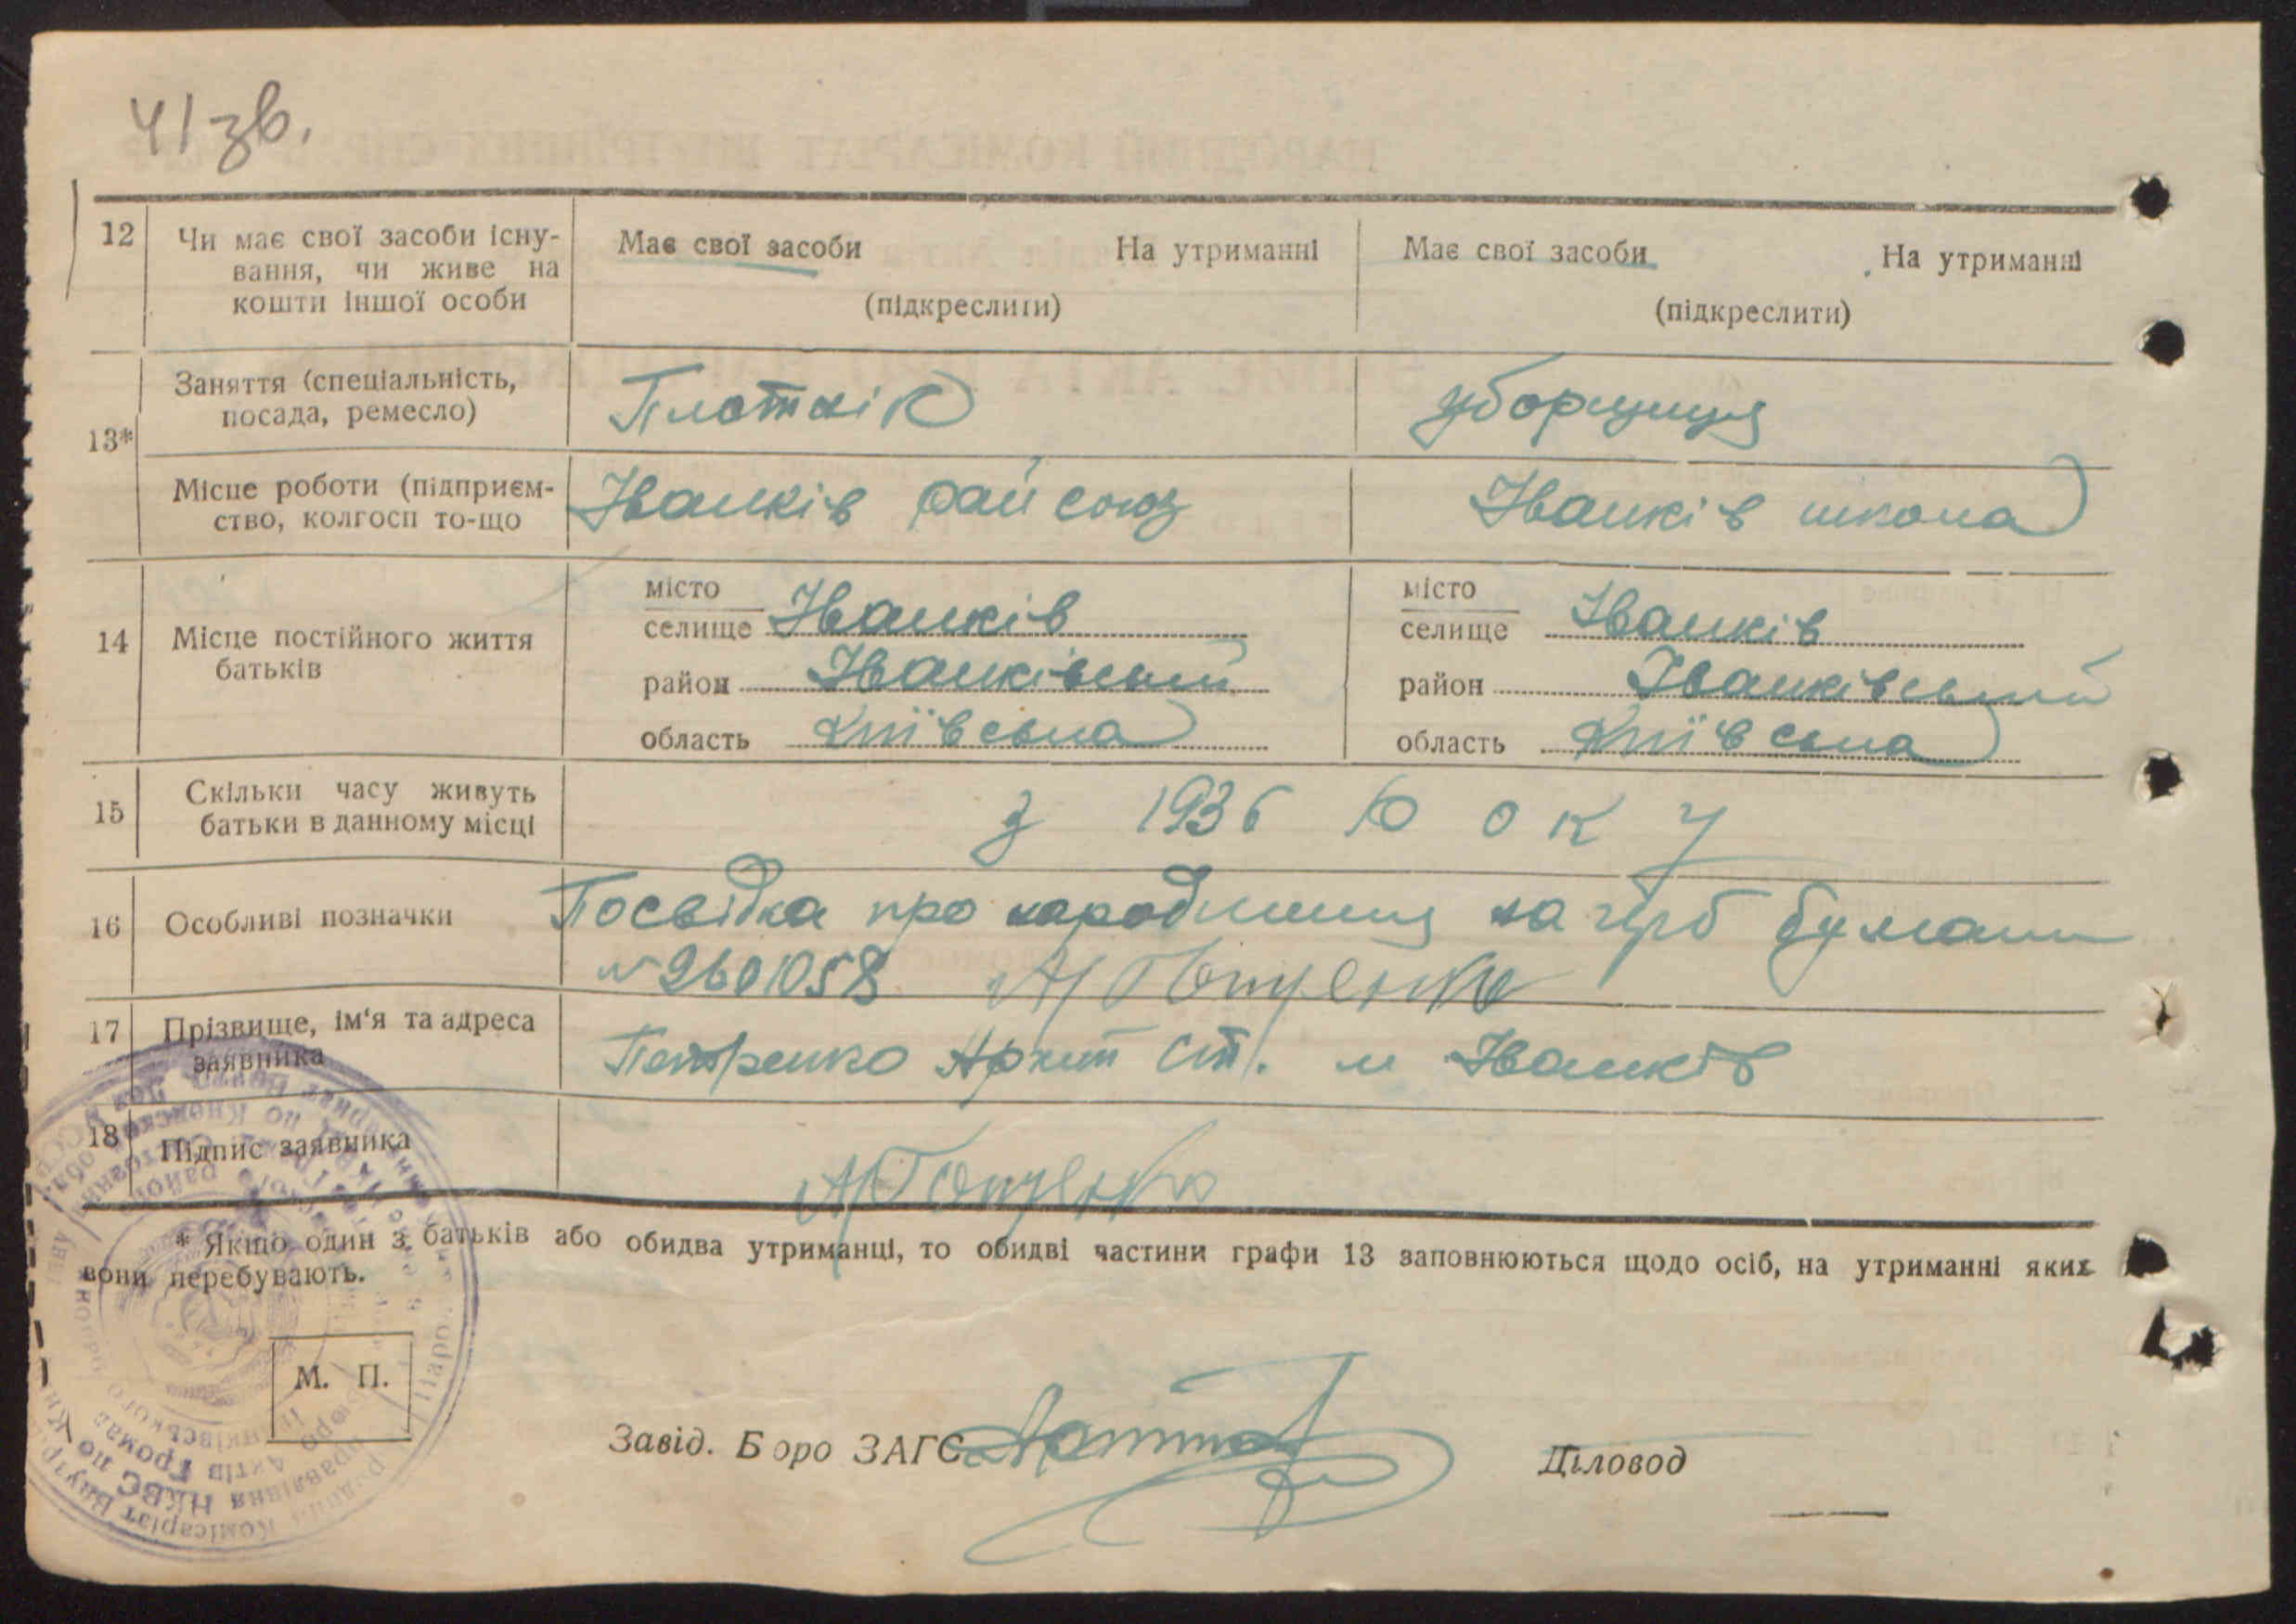 41 зв.
12 Чи має свої засоби існу-
вання, чи живе на
кошти іншої особи
Має свої засоби На утриманні
(підкреслити)
Має свої засоби На утриманні
(підкреслити)
13*
Заняття (спеціальність,
посада, ремесло)
Плотнік
уборщиця
Місце роботи (підприєм-
ство, колгосп то-що
Іванків райсоюз
Іванків школа
14 Місце постійного життя
батьків
місто
селище Іванків
район Іванківський
область Київська
місто
селище Іванків
район Іванківський
область Київська
15 Скільки часу живуть
батьки в данному місці
з 1936 Року
16 Особливі позначки
Посвідка про народження на герб бумаги
№ 2601058
17 Прізвище, ім'я та адреса
заявника
Петренко Архип Ст. м Іванків
18 Підпис заявника
* Якщо один з батьків або обидва утриманці, то обидві частини графи 13 заповнюються щодо осіб, на утриманні яких
вони перебувають.
М. П.
Завід. Бюро ЗАГС
Діловод